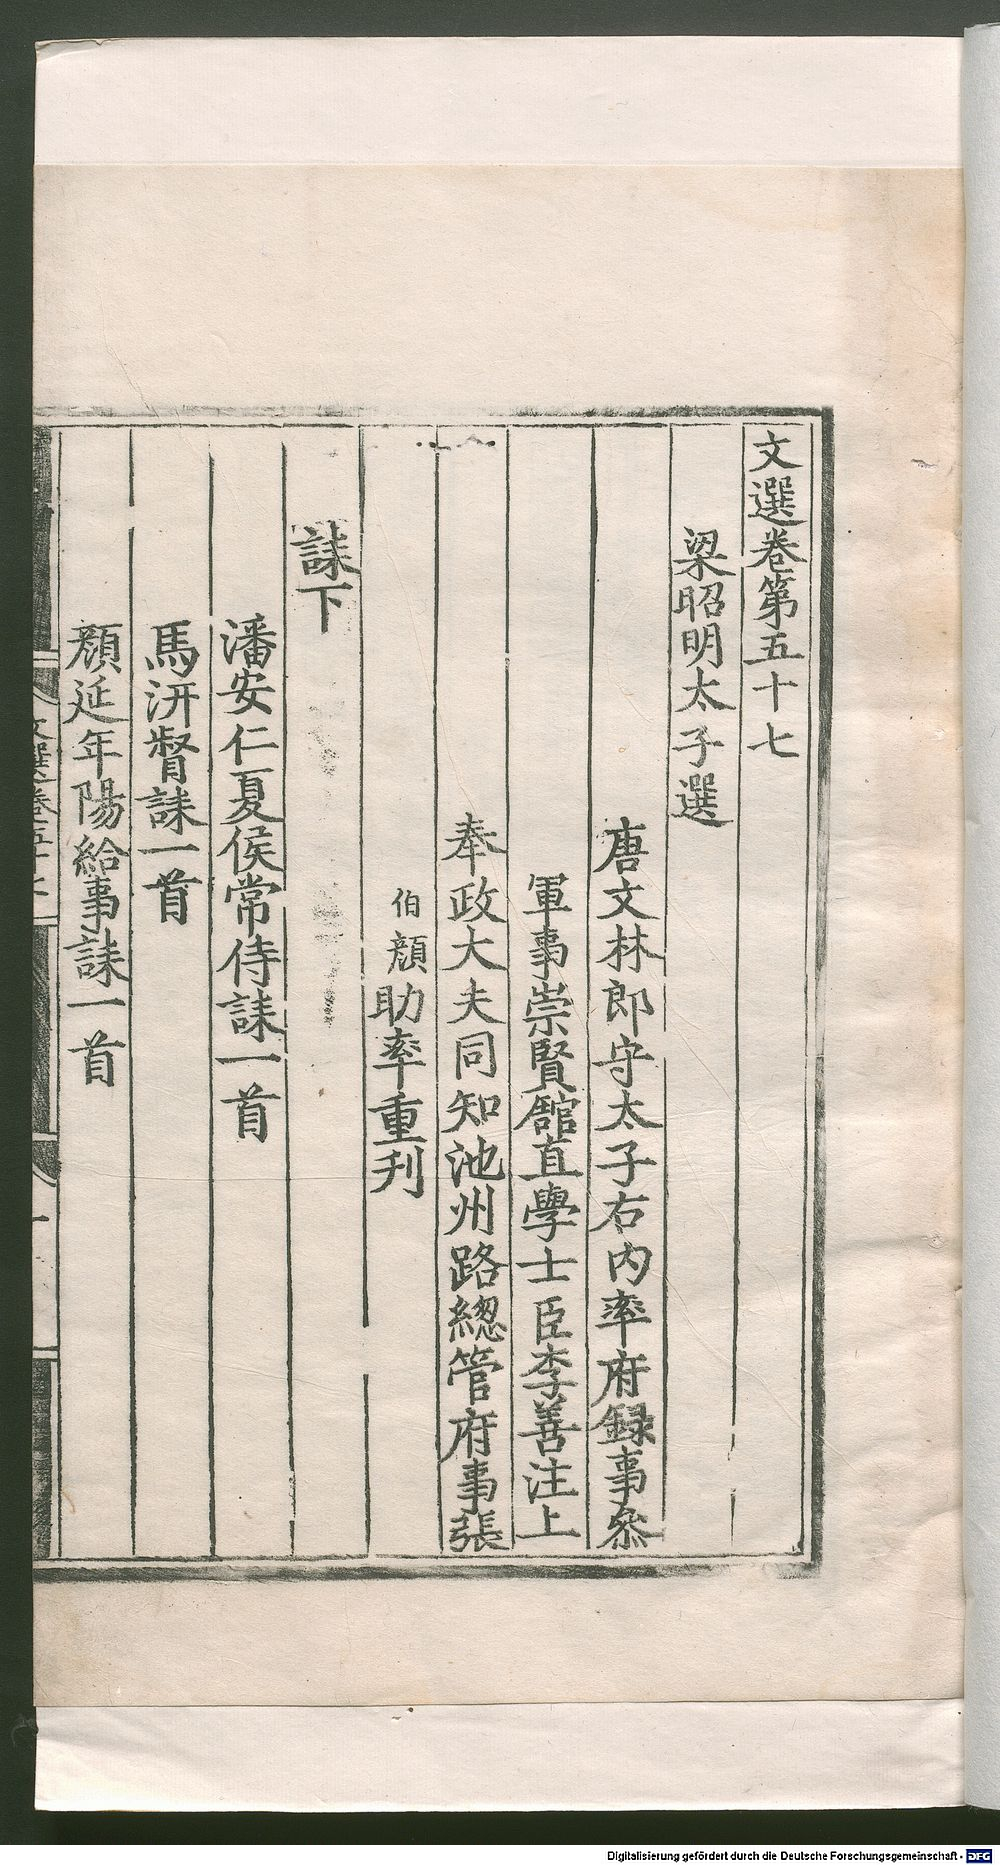 文選卷第五十七
梁昭明太子選
唐文林郎守太子右內率府録事叅
軍事崇賢館直學士臣李善注上
奉政大夫同知池州路緫管府事張
伯顔助率重刋
誄下
潘安仁夏侯常侍誄一首
馬汧督誄一首
顔延年陽給事誄一首
文選卷五十七
一
Digitalisierung gefördert durch die Deutsche Forschungsgemeinschaft - DFG